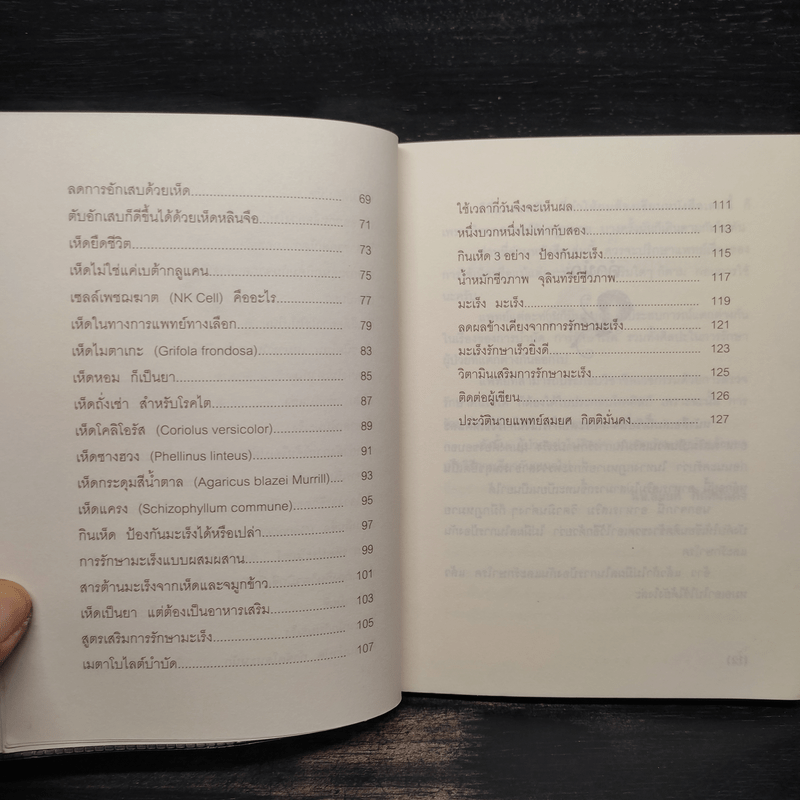 ลดการอักเสบด้วยเห็ด 69
ตับอักเสบก็ดีขึ้นได้ด้วยเห็ดหลินจือ 71
เห็ดยืดชีวิต 73
เห็ดไม่ใช่แค่เบต้ากลูแคน 75
เซลล์เพชฌฆาต (NK Cell) คืออะไร 77
เห็ดในทางการแพทย์ทางเลือก 79
เห็ดไมตาเกะ (Grifola frondosa) 83
เห็ดหอม ก็เป็นยา 85
เห็ดถั่งเช่า สำหรับโรคไต 87
เห็ดโคลิโอรัส (Coriolus versicolor) 89
เห็ดซางฮวง (Phellinus linteus) 91
เห็ดกระดุมสีน้ำตาล (Agaricus blazei Murrill) 93
เห็ดแครง (Schizophyllum commune) 95
กินเห็ด ป้องกันมะเร็งได้หรือเปล่า 97
การรักษามะเร็งแบบผสมผสาน 99
สารต้านมะเร็งจากเห็ดและจมูกข้าว 101
เห็ดเป็นยา แต่ต้องเป็นอาหารเสริม 103
สูตรเสริมการรักษามะเร็ง 105
เมตาโบไลต์บำบัด 107
ใช้เวลากี่วันจึงจะเห็นผล 111
หนึ่งบวกหนึ่งไม่เท่ากับสอง 113
กินเห็ด 3 อย่าง ป้องกันมะเร็ง 115
น้ำหมักชีวภาพ จุลินทรีย์ชีวภาพ 117
มะเร็ง มะเร็ง 119
ลดผลข้างเคียงจากการรักษามะเร็ง 121
มะเร็งรักษาเร็วยิ่งดี 123
วิตามินเสริมการรักษามะเร็ง 125
ติดต่อผู้เขียน 126
ประวัตินายแพทย์สมยศ กิตติมั่นคง 127